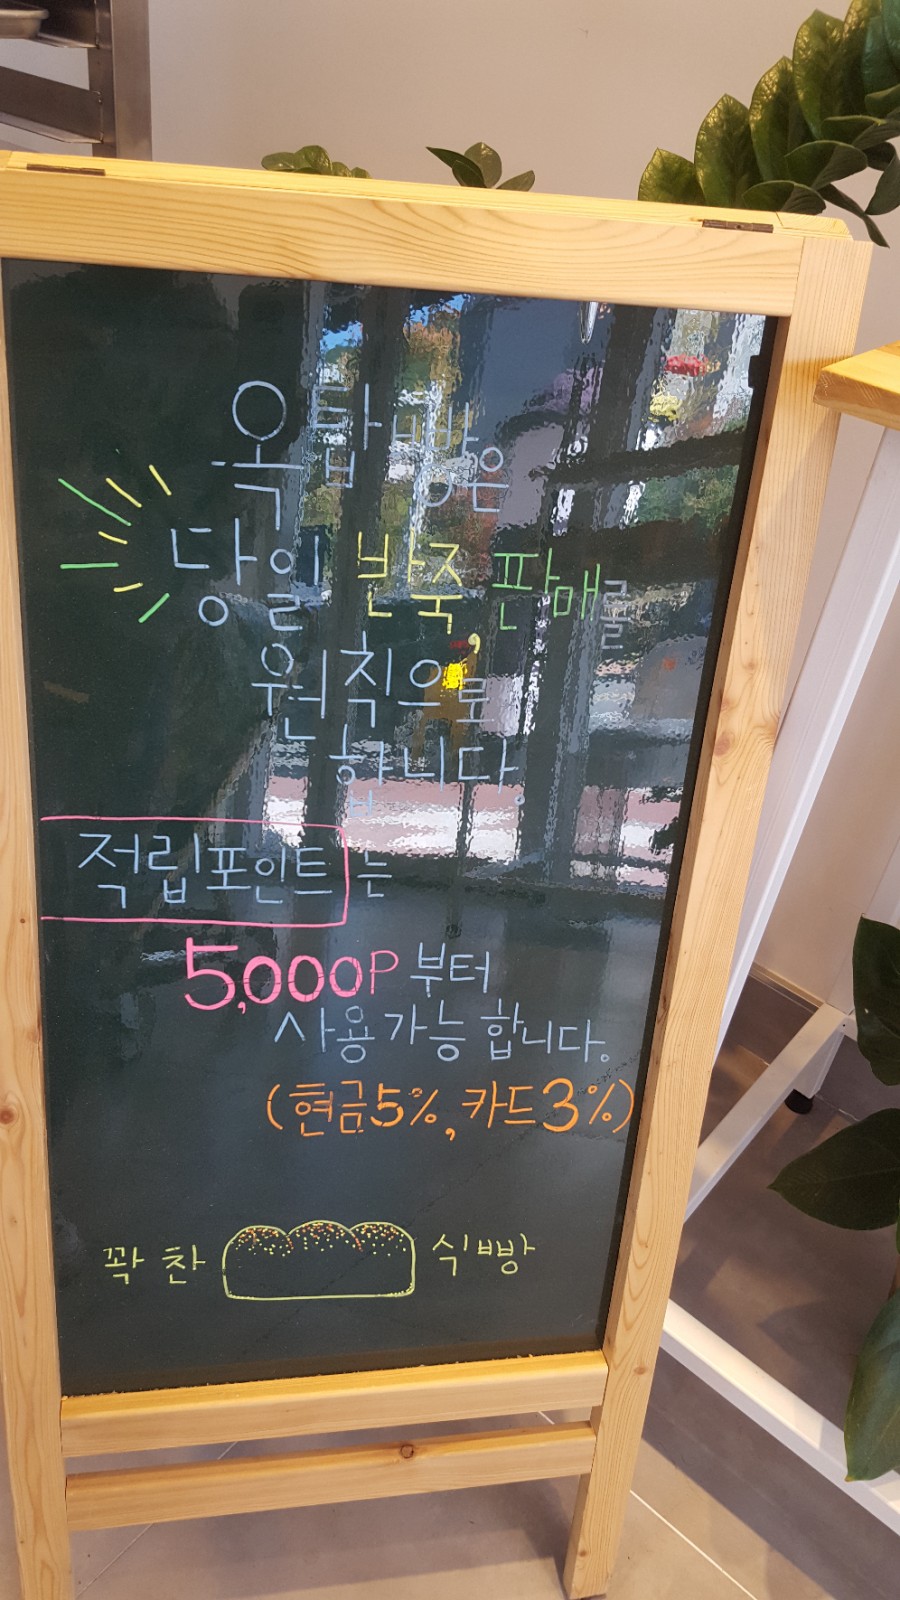 옥탑빵은
당일 반죽, 판매를
원칙으로
합니다.
적립포인트는
5,000P 부터
사용가능합니다.
(현금5%, 카드3%)
꽉 찬 식빵